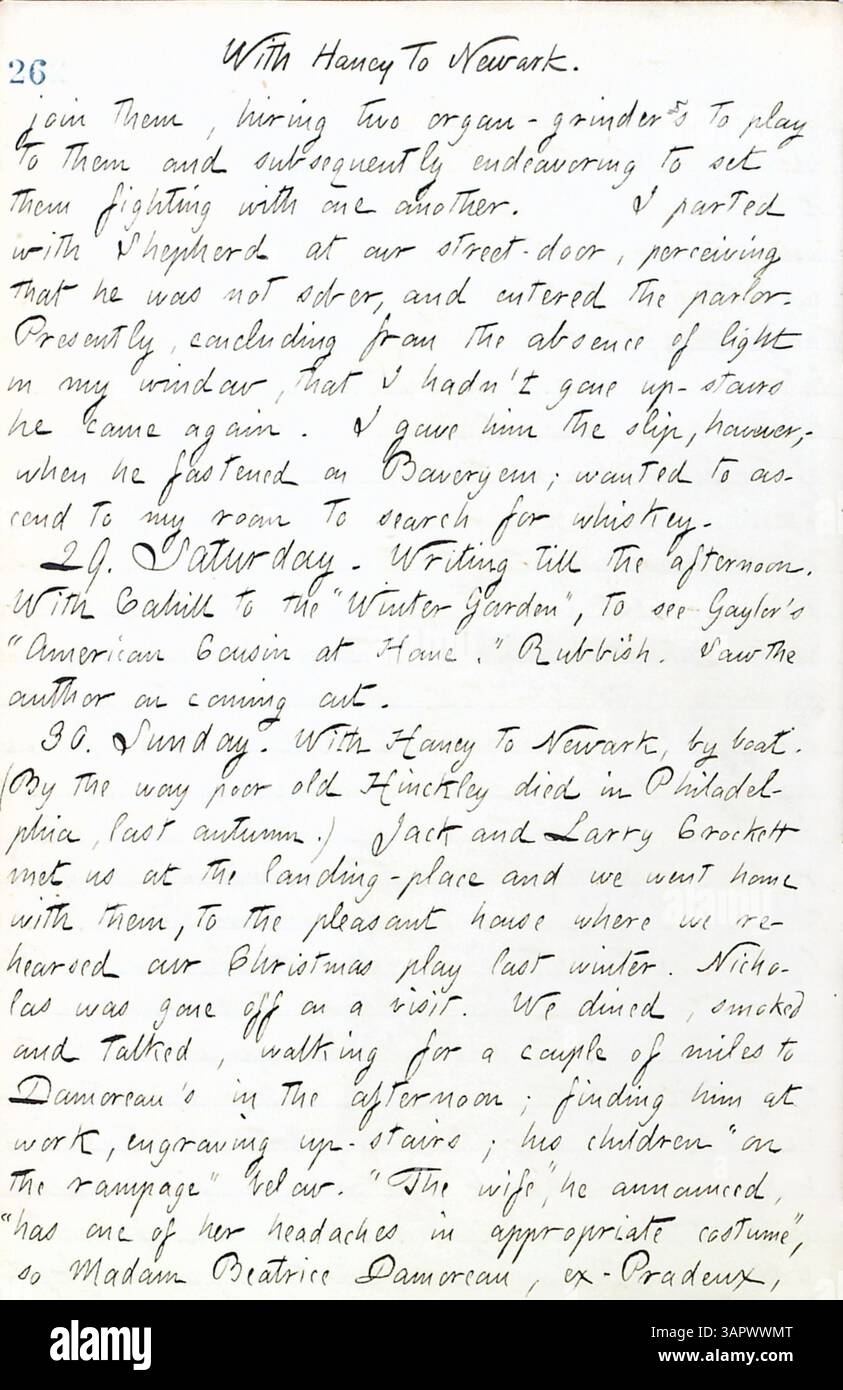 26
With Haney To Newark.
join them, hiring two organ-grinders to play
to them and subsequently endeavoring to set
them fighting with one another. I parted
with Shepherd at our street-door, perceiving
that he was not sober, and entered the parlor.
Presently, concluding from the absence of light
in my window, that I hadn't gone up-stairs
he came again. I gave him the slip, however,
when he fastened on Boweryem; wanted to as-
cend to my room to search for whiskey.
29. Saturday. Writing till the afternoon.
With Cahill to the "Winter Garden", to see Gayler's
"American Cousin at Home." Rubbish. Saw the
author on coming out.
30. Sunday. With Haney to Newark, by boat.
(By the way poor old Hinckley died in Philadel-
phia, last autumn.) Jack and Larry Crockett
met us at the landing-place and we went home
with them, to the pleasant house where we re-
hearsed our Christmas play last winter. Nicho-
las was gone off on a visit. We dined, smoked
and talked, walking for a couple of miles to
Damoreau's in the afternoon; finding him at
work, engraving up-stairs; his children "on
the rampage" below. "The wife", he announced,
"has one of her headaches in appropriate costume",
so Madam Beatrice Damoreau, ex-Pradeux,
alamy
Image ID: 3APWWMT
www.alamy.com